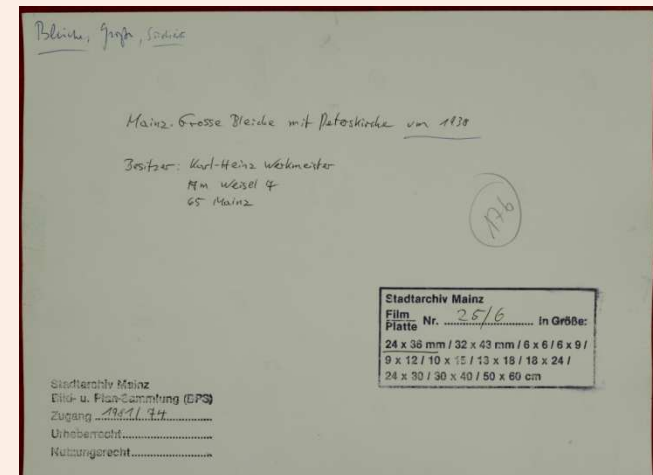 Bleiche, Große,
Mainz. Grosse Bleiche mit Peterskirche um 1938
Besitzer: Karl-Heinz Werkmeister
Am Weisel 7
65 Mainz
176
Stadtarchiv Mainz
Film
Platte Nr. 25/6 in Größe:
24 x 36 mm / 32 x 43 mm / 6 x 6 / 6 x 9 /
9 x 12 / 10 x 15 / 13 x 18 / 18 x 24 /
24 x 30 / 30 x 40 / 50 x 60 cm
Stadtarchiv Mainz
Bild- u. Plan-Sammlung (BPS)
Zugang 1981/74
Urheberrecht
Nutzungsrecht